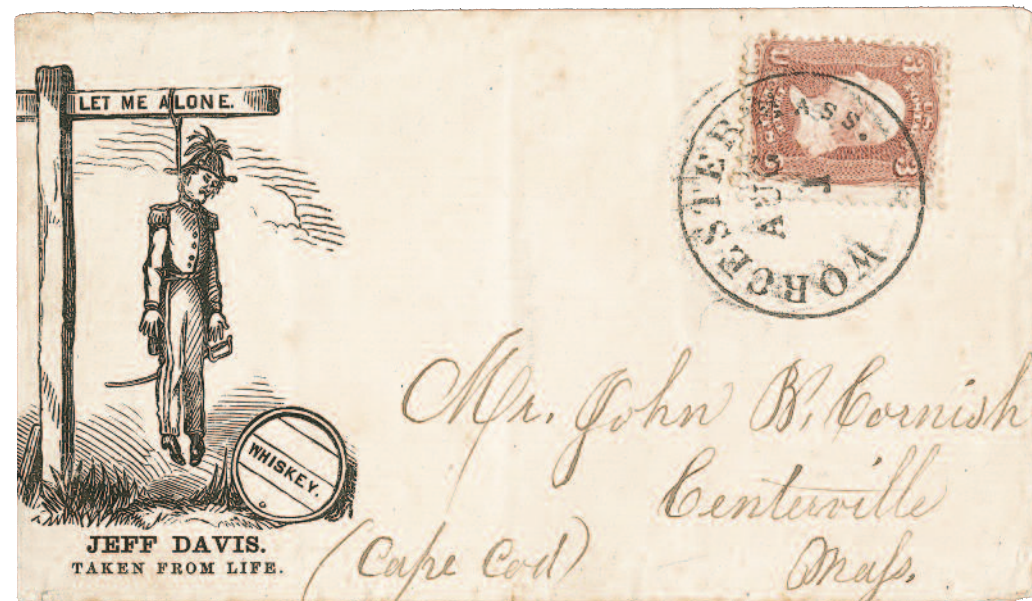 LET ME ALONE.
WHISKEY.
JEFF DAVIS.
TAKEN FROM LIFE.
U 3 U.S.
3
WORCESTER MASS.
AUG
1
Mr. John B. Cornish
Centerville
(Cape Cod) Mass.